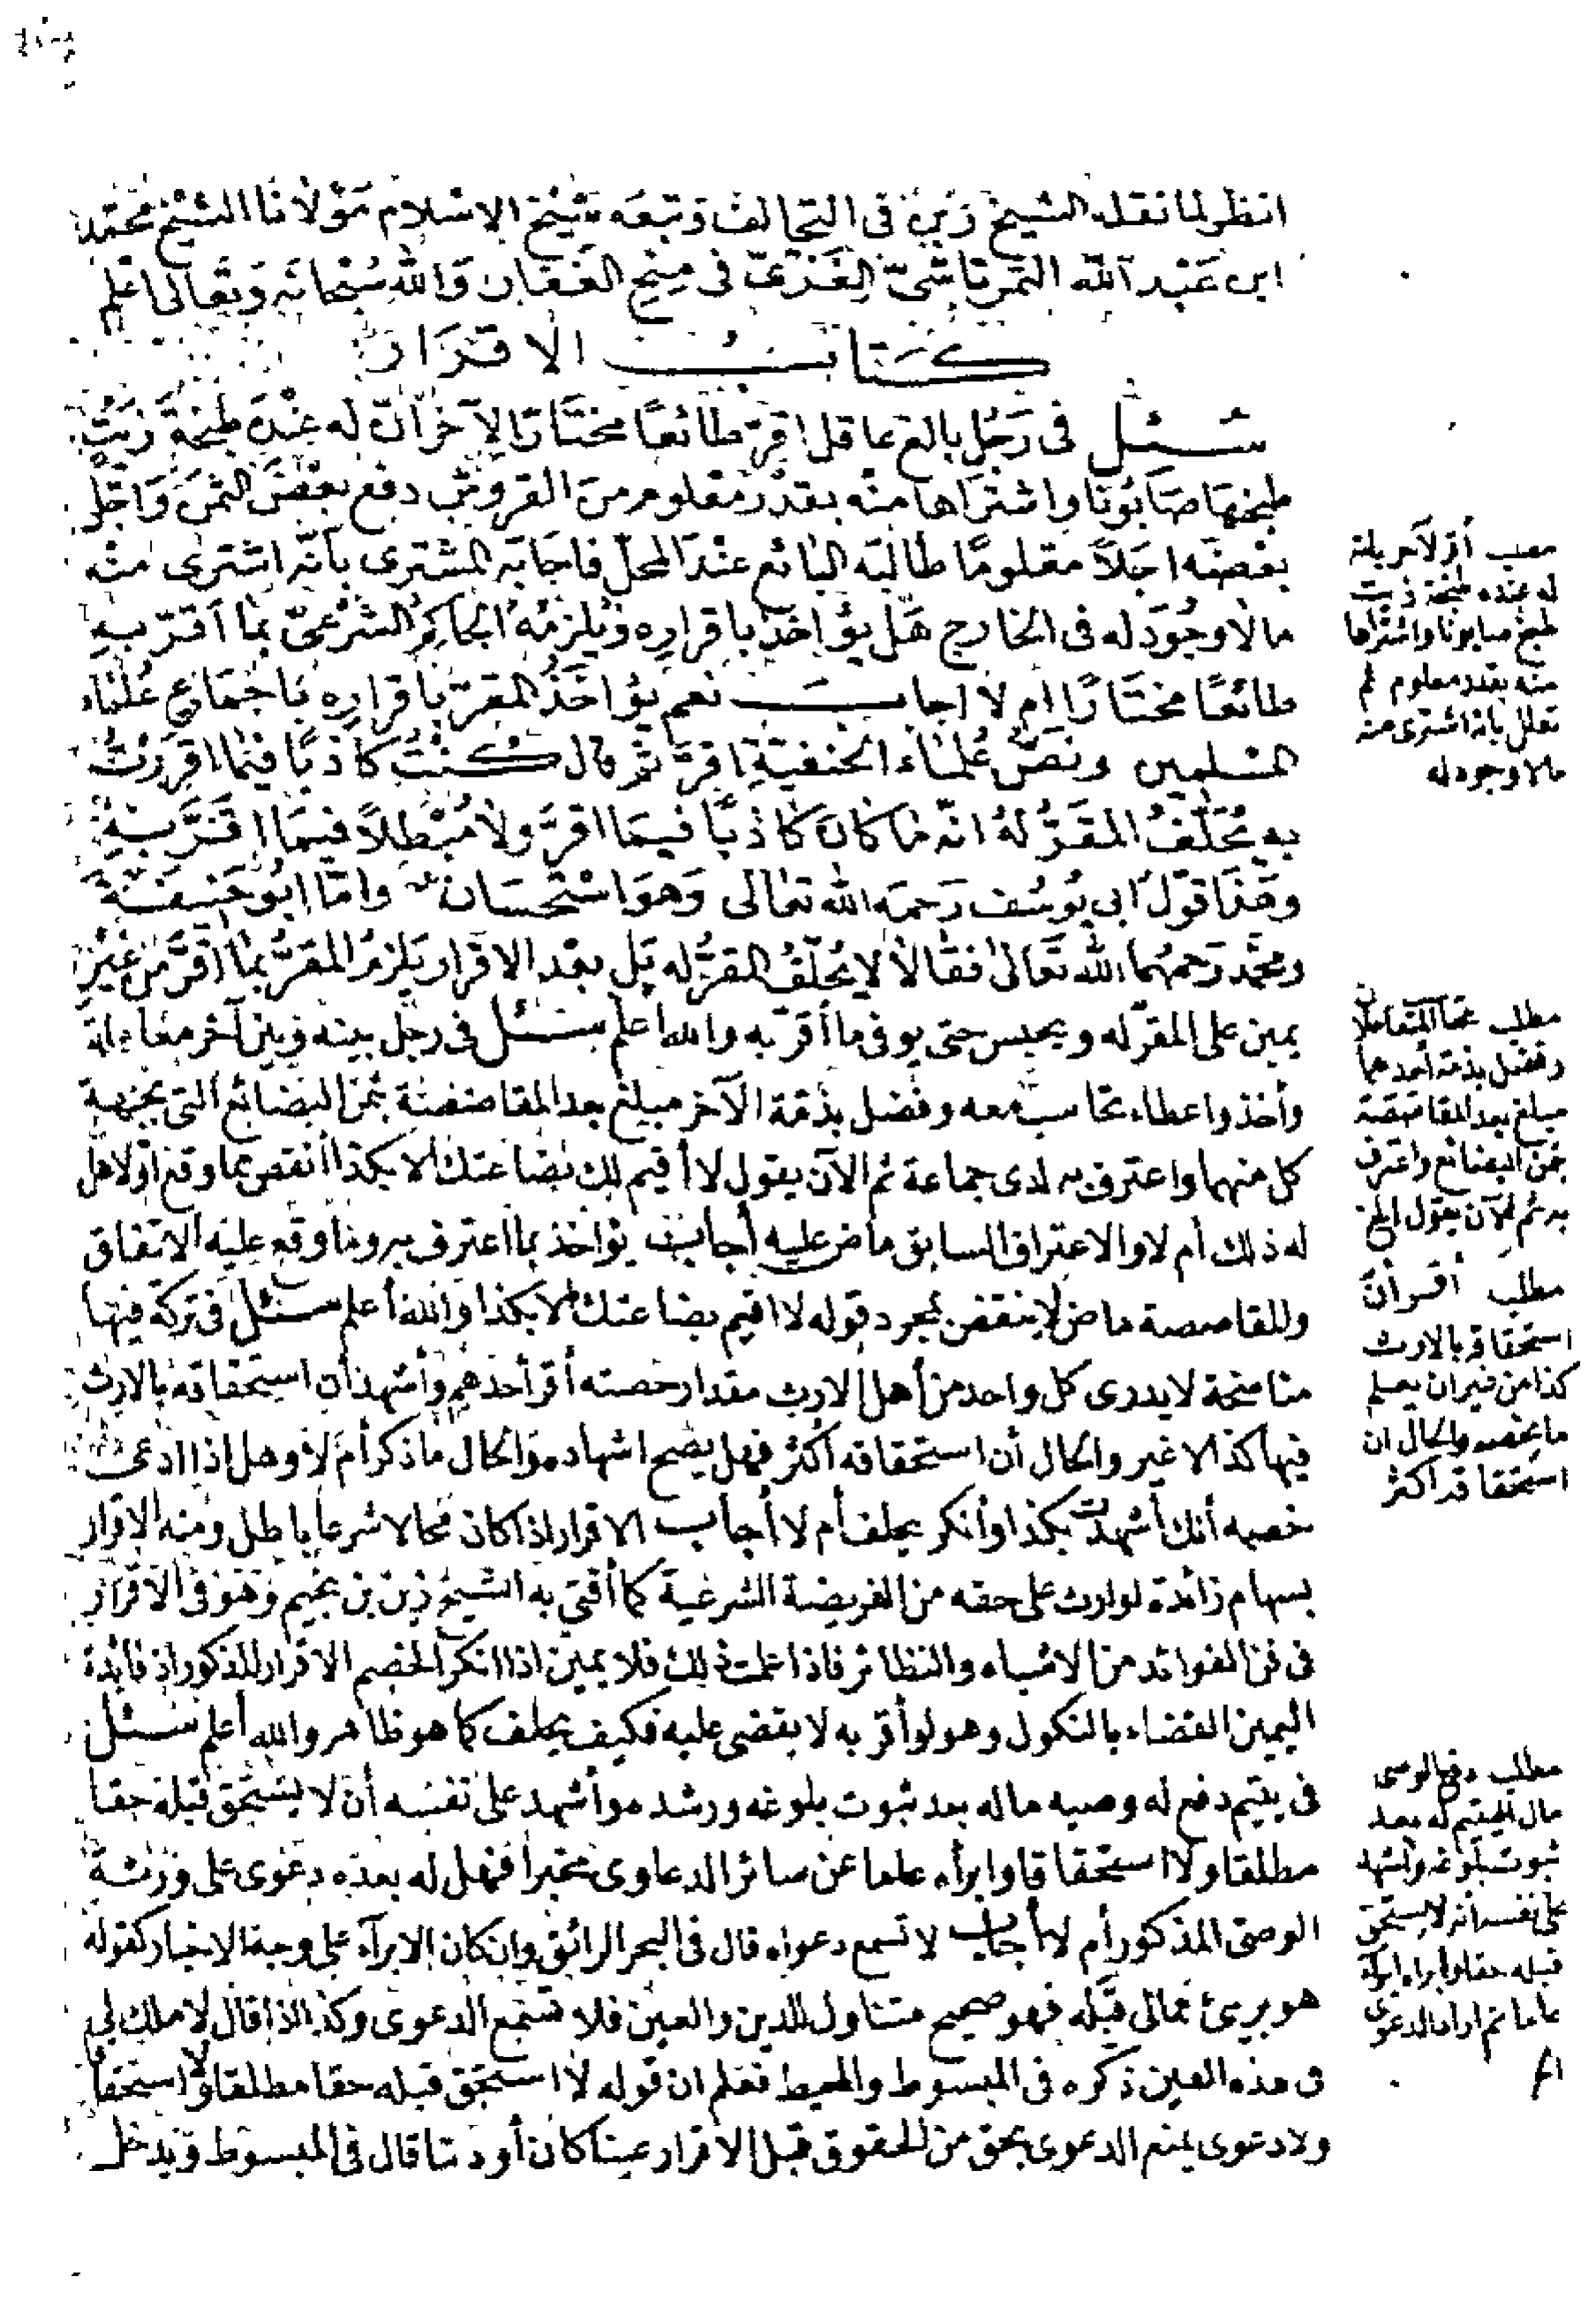 انظر لما نقله الشيخ زين في التحالف وتبعه شيخ الاسلام مولانا الشيخ محمد
ابن عبد الله التمرتاشي الغزي في منح الغفار والله سبحانه وتعالى اعلم
كتاب الاقرار
سئل في رجل بالغ عاقل اقر طائعا مختارا لآخر ان له عنده طبخة زيت
طبخها صابونا واشتراها منه بقدر معلوم من القروش دفع بعض الثمن واجل
بعضه اجلا معلوما طالبه البائع عند المحل فاجابه المشتري بانه اشترى منه
مالا وجود له في الخارج هل يؤاخذ باقراره ويلزمه الحاكم الشرعي بما اقر به
طائعا مختارا ام لا اجاب نعم يؤاخذ المقر باقراره باجماع علماء
المسلمين ونص علماء الحنفية اقر ثم قال كنت كاذبا فيما اقررت
به يحلف المقر له انه ما كان كاذبا فيما اقر ولا مبطلا فيما اقر به
وهذا قول ابي يوسف رحمه الله تعالى وهو استحسان واما ابو حنيفة
ومحمد رحمهما الله تعالى فقالا لا يحلف المقر له بل بعد الاقرار يلزم المقر بما اقر من غير
يمين على المقر له ويحبس حتى يوفي ما أقر به والله اعلم سئل في رجل بينه وبين آخر معاملة
وأخذ واعطاء تحاسب معه وفضل بذمة الآخر مبلغ بعد المقاصصة بثمن البضائع التي بجهة
كل منهما واعترف به لدى جماعة ثم الآن يقول لا أقيم لك بضاعتك الا بكذا أنقص مما وقع أولا هل
له ذلك أم لا والاعتراف السابق ماض عليه أجاب يؤاخذ بما اعترف به وما وقع عليه الاتفاق
وللمقاصصة ماض لا ينقض لمجرد قوله لا اقيم بضاعتك الا بكذا والله أعلم سئل في تركة فيها
مناسخة لا يدري كل واحد من أهل الارث مقدار حصته أقر أحدهم وأشهد أن استحقاقه بالارث
فيها كذا لا غير والحال أن استحقاقه أكثر فهل يصح اشهاده والحال ما ذكر أم لا وهل اذا ادعى
خصمه أنك أشهدت بكذا وأنكر يحلف أم لا أجاب الاقرار اذا كان محالا شرعا باطل ومنه الاقرار
بسهام زائدة لوارث على حقه من الفريضة الشرعية كما أفتى به الشيخ زين بن نجيم وهو في الاقرار
في فن الفوائد من الاشباه والنظائر فاذا علمت ذلك فلا يمين اذا انكر الخصم الاقرار المذكور اذ فائدة
اليمين القضاء بالنكول وهو لو أقر به لا يقضى عليه فكيف يحلف كما هو ظاهر والله أعلم سئل
في يتيم دفع له وصيه ماله بعد ثبوت بلوغه ورشده وأشهد على نفسه أن لا يستحق قبله حقا
مطلقا ولا استحقاقا وابراه عاما عن سائر الدعاوى مخبرا فهل له بعده دعوى على ورثة
الوصي المذكور أم لا أجاب لا تسمع دعواه قال في البحر الرائق وان كان الابرآء على وجه الاخبار كقوله
هو بريئ مما لي قبله فهو صحيح متناول للدين والعين فلا تسمع الدعوى وكذا اذا قال لا ملك لي
في هذه العين ذكره في المبسوط والمحيط فعلم ان قوله لا استحق قبله حقا مطلقا ولا استحقاقا
ولا دعوى يمنع الدعوى بحق من الحقوق قبل الاقرار عينا كان أو دينا قال في المبسوط ويدخل
مطلب أقر لآخر بان
له عنده طبخة زيت
طبخ صابونا واشتراها
منه بقدر معلوم ثم
تعلل بانه اشترى منه
مالا وجود له
مطلب تحاسب المتعاملان
وفضل بذمة أحدهما
مبلغ بعد المقاصصة
بثمن البضائع واعترف
به ثم الآن يقول الخ
مطلب أقر ان
استحقاقه بالارث
كذا من غير ان يعلم
ما يخصه والحال ان
استحقاقه اكثر
مطلب دفع الوصي
مال اليتيم له بعد
ثبوت بلوغه وأشهد
على نفسه أنه لا يستحق
قبله حقا وابراه ابراء
عاما ثم اراد الدعوى
الخ